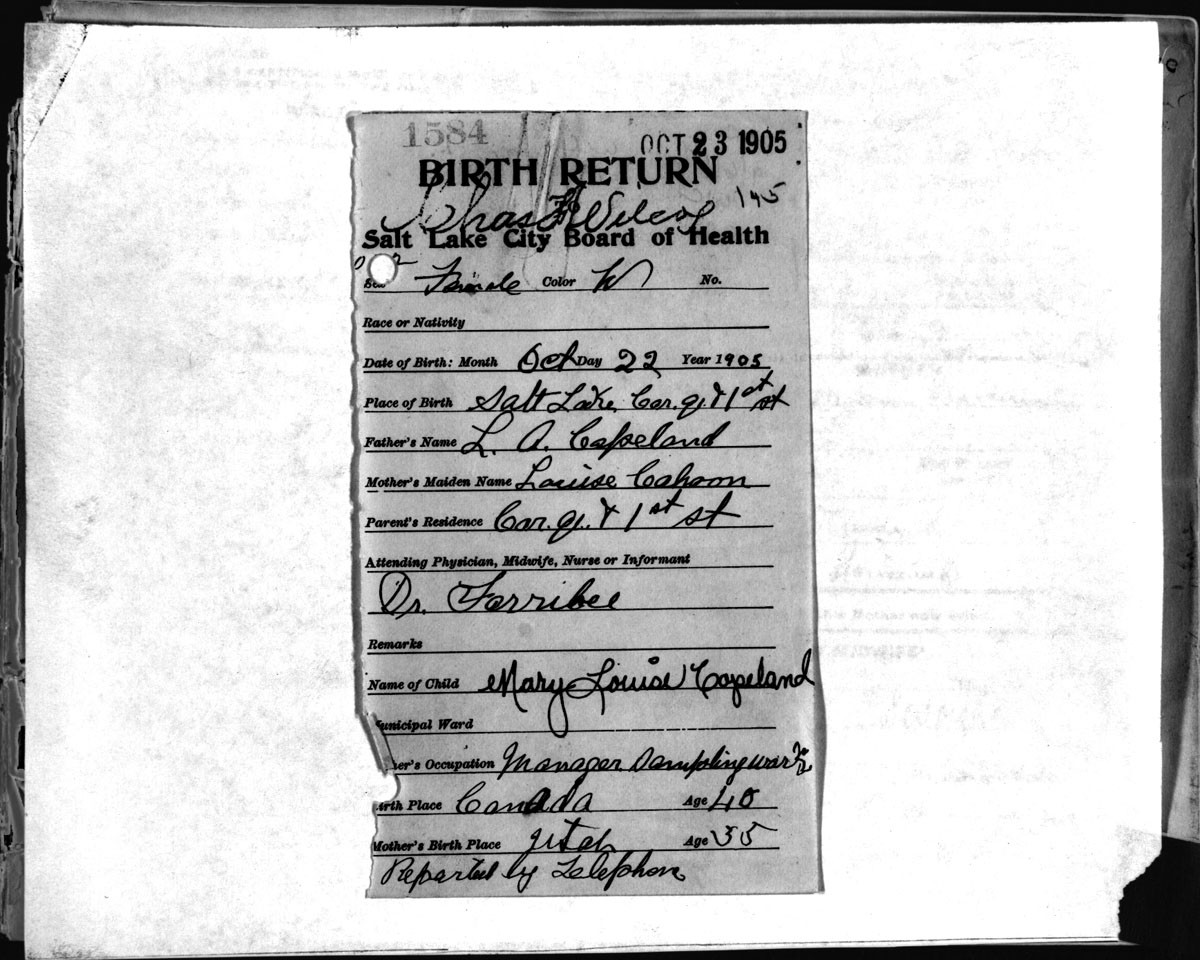 1584
OCT 23 1905
BIRTH RETURN
Chas Wilcox
Salt Lake City Board of Health
Female Color W No.
Race or Nativity
Date of Birth: Month Oct Day 22 Year 1905
Place of Birth Salt Lake Cor. q. & 1st st
Father's Name L. A. Copeland
Mother's Maiden Name Louise Cahoon
Parent's Residence Cor. q. & 1st st
Attending Physician, Midwife, Nurse or Informant
Dr. Ferribee
Remarks
Name of Child Mary Louise Copeland
unicipal Ward
her's Occupation Manager Sampling works
irth Place Canada Age 40
Mother's Birth Place Utah Age 35
Reported by Telephone